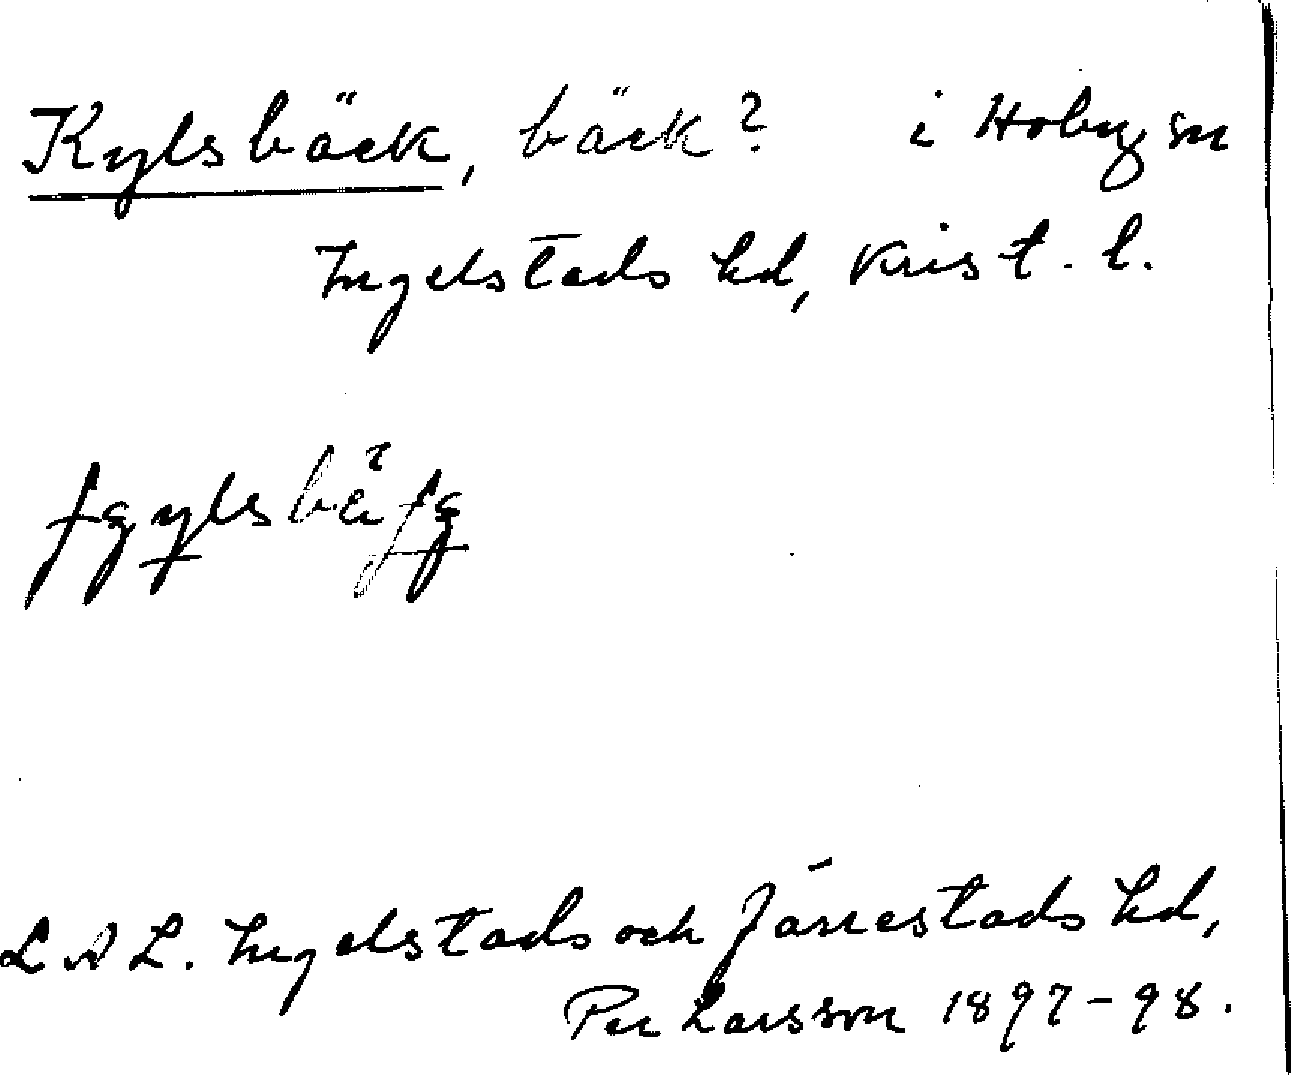 Kylsbäck, bäck? i Hoby sn
Ingelstads hd, Krist. l.
L A L. Ingelstads och Järrestads hd,
Per Larsson 1897-98.